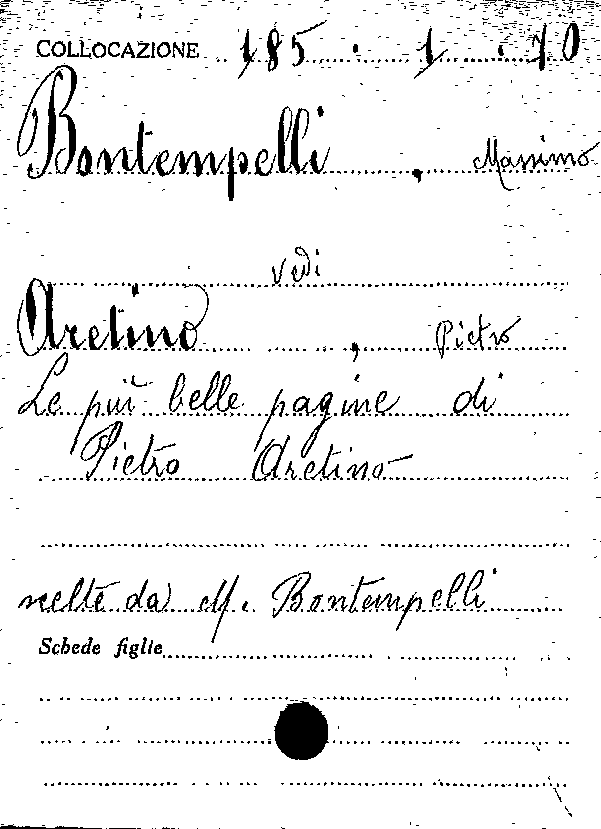 COLLOCAZIONE 185 . 1 . 10
Bontempelli , Massimo
vedi
Aretino , Pietro
Le più belle pagine di
Pietro Aretino
scelte da M. Bontempelli
Schede figlie